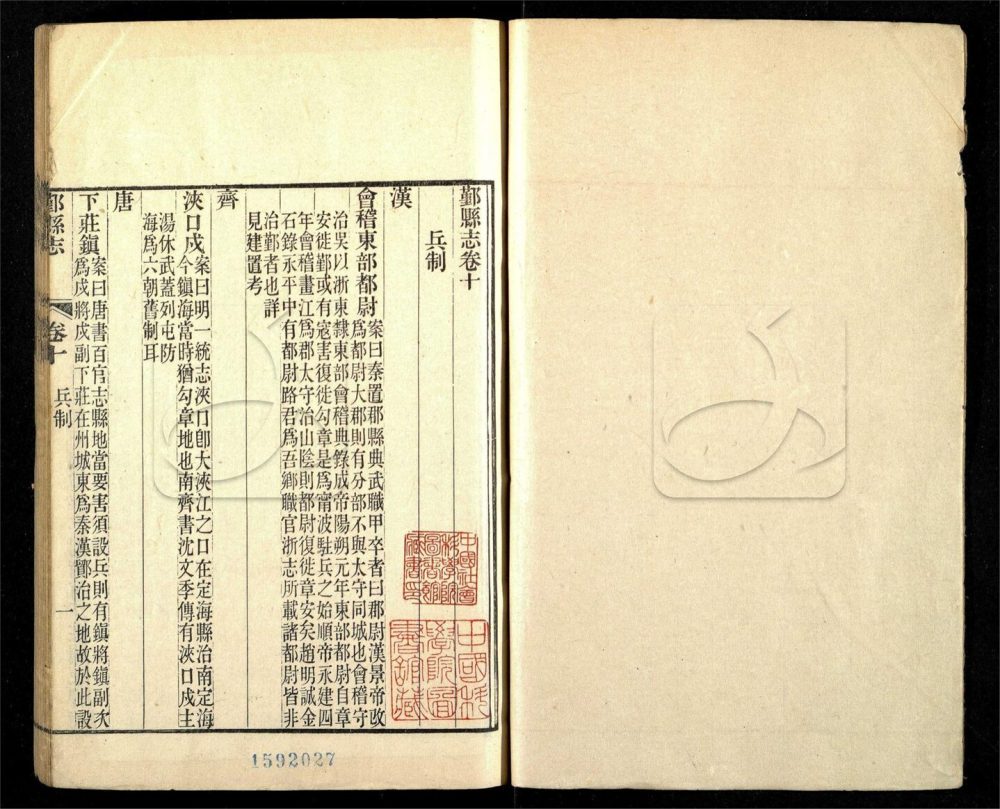 鄞縣志卷十
兵制
漢
會稽東部都尉案曰秦置郡縣典武職甲卒者曰郡尉漢景帝改
爲都尉大郡則有分部不與太守同城也會稽守
治吳以浙東隸東部會稽典錄成帝陽朔元年東部都尉自章
安徙鄞或有寇害復徙勾章是爲甯波駐兵之始順帝永建四
年會稽畫江爲郡太守治山陰則都尉復徙章安矣趙明誠金
石錄永平中有都尉路君爲吾鄉職官浙志所載諸都尉皆非
治鄞者也詳
見建置考
齊
浹口戍案曰明一統志浹口卽大浹江之口在定海縣治南定海
今鎮海當時猶勾章地也南齊書沈文季傳有浹口戍主
湯休武蓋列屯防
海爲六朝舊制耳
唐
下莊鎮案曰唐書百官志縣地當要害須設兵則有鎮將鎮副次
爲戍將戍副下莊在州城東爲秦漢鄮治之地故於此設
鄞縣志
卷十
兵制
一
中國社會
科學院
圖書館
藏書印
中國科
學院圖
書館藏
1592027